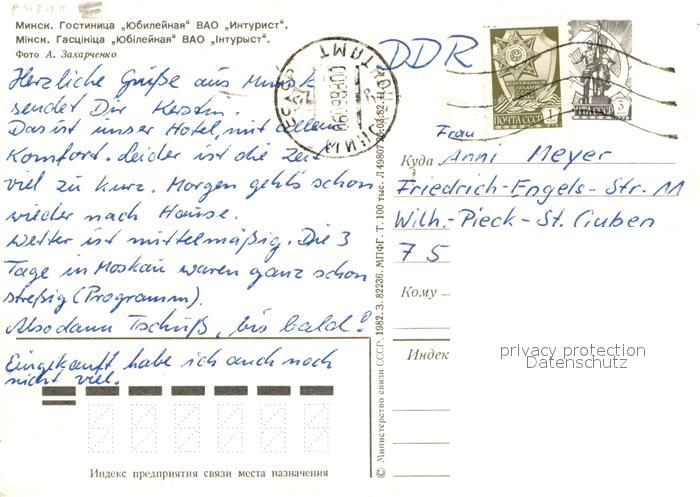 Минск. Гостиница „Юбилейная" ВАО „Интурист".
Мінск. Гасцініца „Юбілейная" ВАО „Інтурыст".
Фото А. Захарченко
Herzliche Grüße aus Minsk
sendet Dir Kerstin.
Das ist unser Hotel, mit allem
Komfort. Leider ist die Zeit
viel zu kurz. Morgen geht's schon
wieder nach Hause.
Wetter ist mittelmäßig. Die 3
Tage in Moskau waren ganz schön
streßig (Programm).
Also dann Tschüß, bis bald!
Eingekauft habe ich auch noch
nicht viel.
Индекс предприятия связи места назначения
© Министерство связи СССР. 1982. З. 82236. МПФГ. Т. 100 тыс.
МИНСК
ПОЧТАМТ
DDR
ПОЧТА СССР 1
ПОЧТА СССР 3
Frau
Куда Anni Meyer
Friedrich-Engels-Str. 11
Wilh.-Pieck-St. Guben
75
Кому
Индекс
privacy protection
Datenschutz